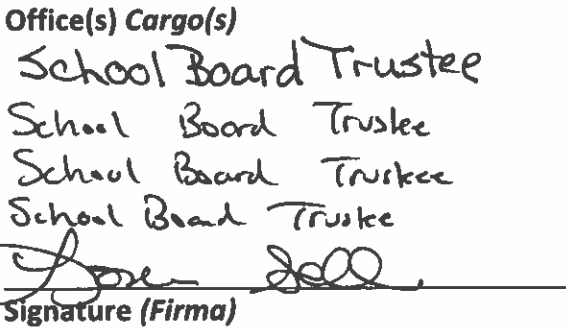 Office(s) Cargo(s)
School Board Trustee
School Board Trustee
School Board Trustee
School Board Trustee
Signature (Firma)